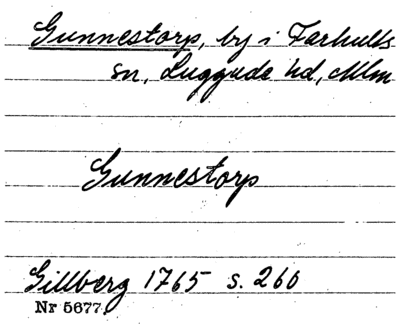 Gunnestorp, by i Farhults
sn, Luggude hd, Mlm
Gunnestorp
Gillberg 1765 s. 260
Nr 5677